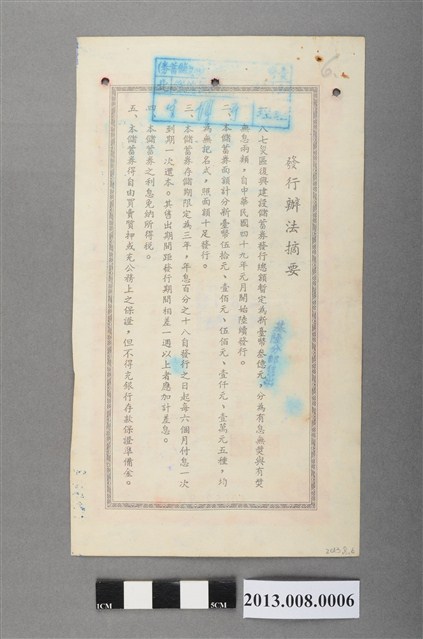 6.
發行辦法摘要
八七災區復興建設儲蓄券發行總額暫定為新臺幣叁億元，分為有息無獎與有獎
無息兩類，自中華民國四十九年元月開始陸續發行。
二、本儲蓄券面額計分新臺幣伍拾元、壹佰元、伍佰元、壹仟元、壹萬元五種，均
為無記名式，照面額十足發行。
三、本儲蓄券存儲期限定為三年，年息百分之十八自發行之日起每六個月付息一次
到期一次還本。其售出期間距發行期間相差一週以上者應加計差息。
四、本儲蓄券之利息免納所得稅。
五、本儲蓄券得自由買賣質押或充公務上之保證，但不得充銀行存款保證準備金。
1CM
5CM
2013.008.0006